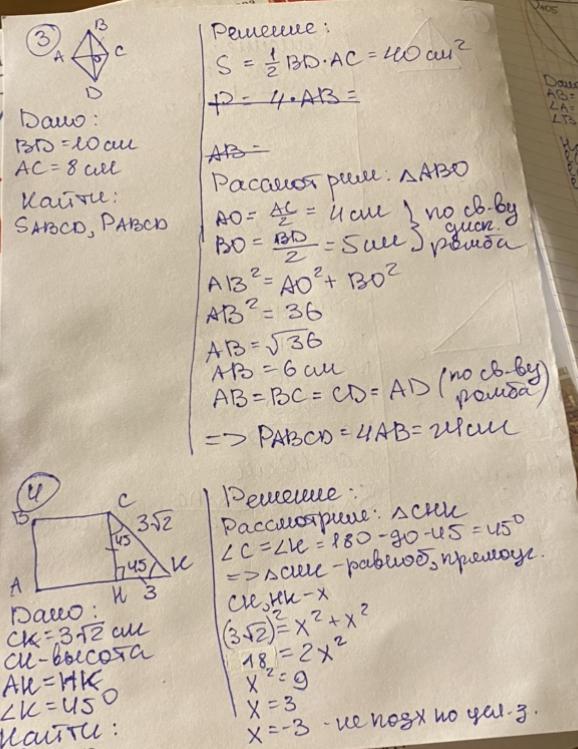 3
B
A C
D
Дано:
BD = 10 см
AC = 8 см
Найти:
SABCD, PABCD
Решение:
S = 1/2 BD · AC = 40 см²
P = 4 · AB =
AB =
Рассмотрим: △ABO
AO = AC/2 = 4 см } по св-ву
BO = BD/2 = 5 см } диаг. ромба
AB² = AO² + BO²
AB² = 36
AB = √36
AB = 6 см
AB = BC = CD = AD (по св-ву ромба)
=> PABCD = 4AB = 24 см
4
B C 3√2
45
45 K
A H 3
Дано:
CK = 3√2 см
CH - высота
AH = HK
∠K = 45°
Найти:
Решение:
Рассмотрим: △CHK
∠C = ∠K = 180 - 90 - 45 = 45°
=> △CHK - равноб, прямоуг.
CH, HK - x
(3√2)² = x² + x²
18 = 2x²
x² = 9
x = 3
x = -3 - не подх по усл. з.
Дано
AB =
∠A =